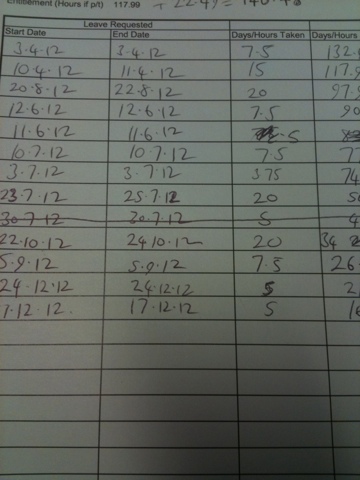 Entitlement (Hours if p/t) 117.99 + 22.49 = 140.48
Leave Requested
Start Date End Date Days/Hours Taken Days/Hours
3.4.12 3.4.12 7.5 132.
10.4.12 11.4.12 15 117.9
20.8.12 22.8.12 20 97.9
12.6.12 12.6.12 7.5 90
11.6.12 11.6.12
10.7.12 10.7.12 7.5 77
3.7.12 3.7.12 3.75 74
23.7.12 25.7.12 20 5
30.7.12 30.7.12 5 4
22.10.12 24.10.12 20 34
5.9.12 5.9.12 7.5 26.
24.12.12 24.12.12 5 2
7.12.12. 17.12.12 5 16